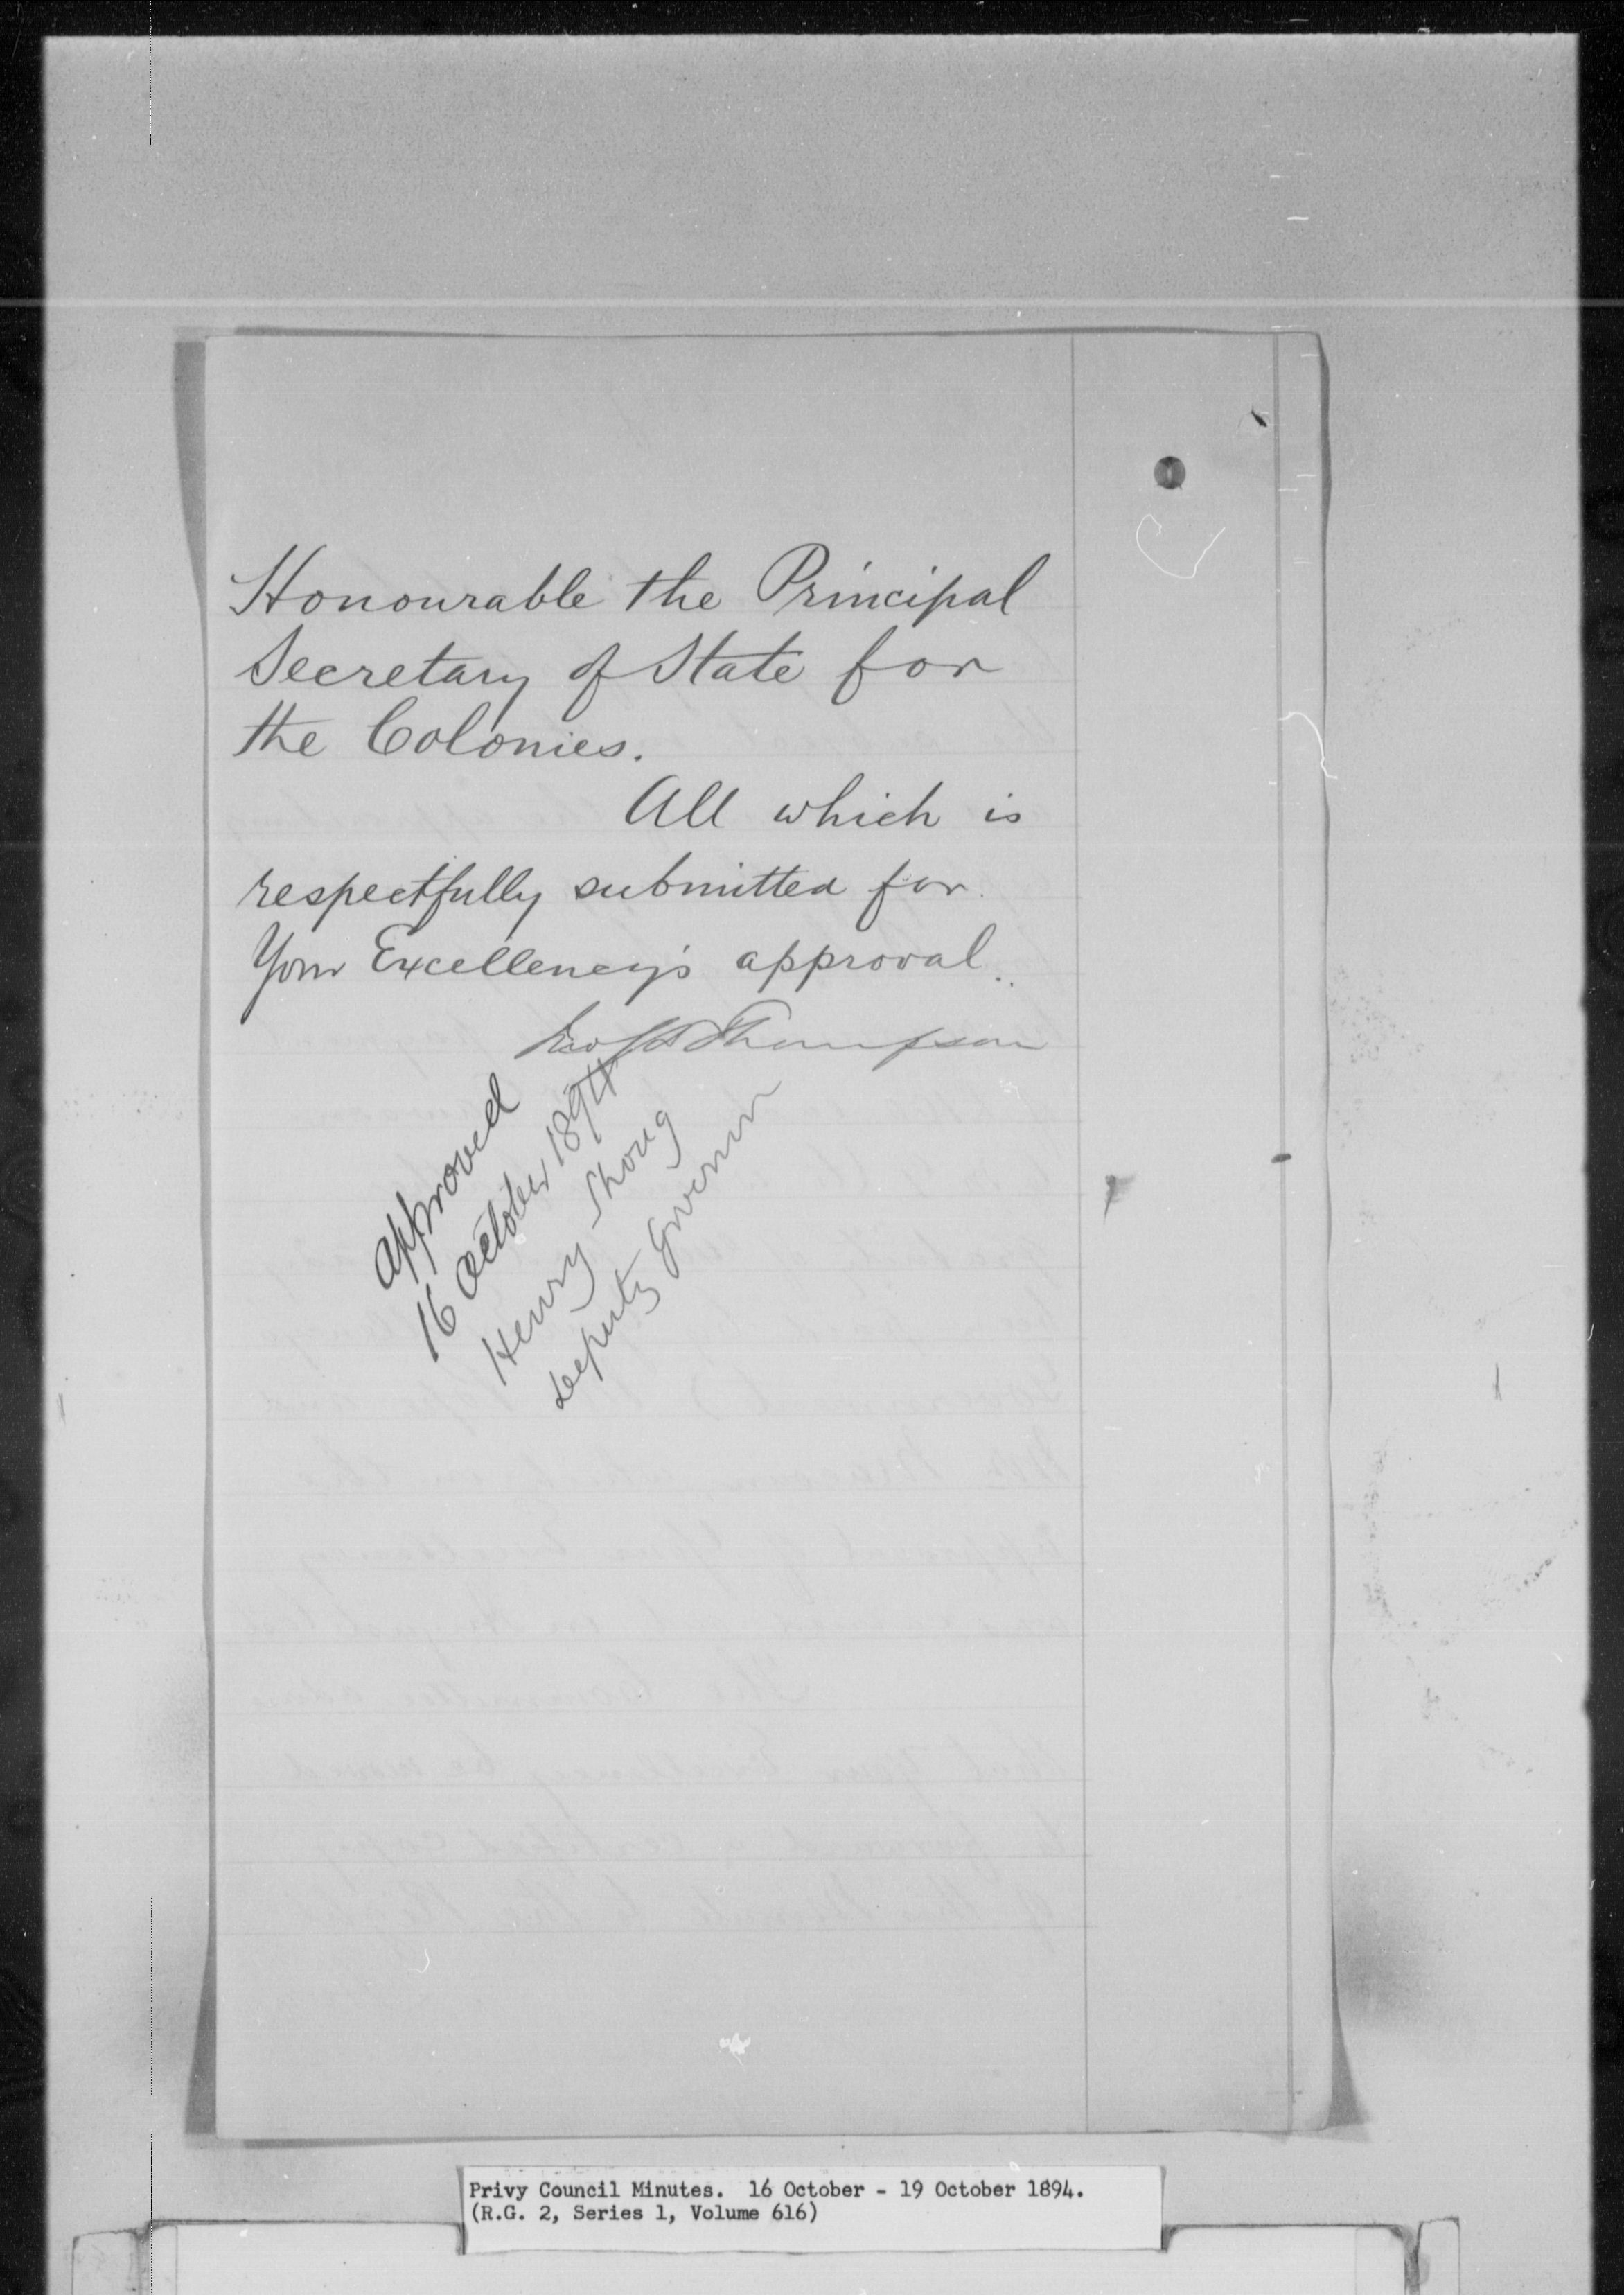 Honourable the Principal
Secretary of State for
the Colonies.
All which is
respectfully submitted for
Your Excellency's approval.
Jno S D Thompson
approved
16 October 1894
Henry Strong
Deputy Governor
Privy Council Minutes. 16 October - 19 October 1894.
(R.G. 2, Series 1, Volume 616)